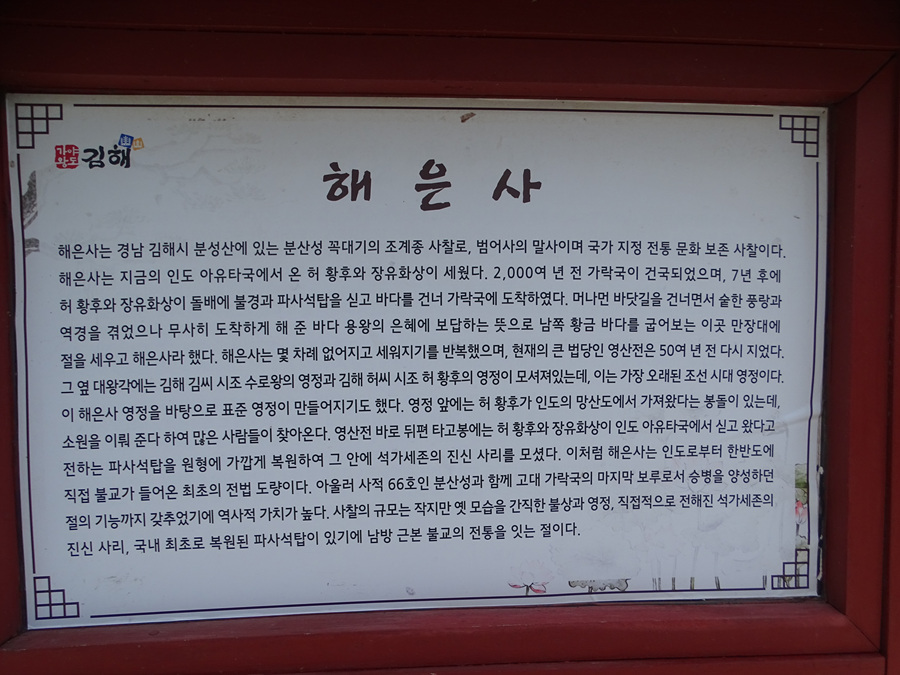 가야
왕도
김해
해은사
해은사는 경남 김해시 분성산에 있는 분산성 꼭대기의 조계종 사찰로, 범어사의 말사이며 국가 지정 전통 문화 보존 사찰이다.
해은사는 지금의 인도 아유타국에서 온 허 황후와 장유화상이 세웠다. 2,000여 년 전 가락국이 건국되었으며, 7년 후에
허 황후와 장유화상이 돌배에 불경과 파사석탑을 싣고 바다를 건너 가락국에 도착하였다. 머나먼 바닷길을 건너면서 숱한 풍랑과
역경을 겪었으나 무사히 도착하게 해 준 바다 용왕의 은혜에 보답하는 뜻으로 남쪽 황금 바다를 굽어보는 이곳 만장대에
절을 세우고 해은사라 했다. 해은사는 몇 차례 없어지고 세워지기를 반복했으며, 현재의 큰 법당인 영산전은 50여 년 전 다시 지었다.
그 옆 대왕각에는 김해 김씨 시조 수로왕의 영정과 김해 허씨 시조 허 황후의 영정이 모셔져있는데, 이는 가장 오래된 조선 시대 영정이다.
이 해은사 영정을 바탕으로 표준 영정이 만들어지기도 했다. 영정 앞에는 허 황후가 인도의 망산도에서 가져왔다는 봉돌이 있는데,
소원을 이뤄 준다 하여 많은 사람들이 찾아온다. 영산전 바로 뒤편 타고봉에는 허 황후와 장유화상이 인도 아유타국에서 싣고 왔다고
전하는 파사석탑을 원형에 가깝게 복원하여 그 안에 석가세존의 진신 사리를 모셨다. 이처럼 해은사는 인도로부터 한반도에
직접 불교가 들어온 최초의 전법 도량이다. 아울러 사적 66호인 분산성과 함께 고대 가락국의 마지막 보루로서 승병을 양성하던
절의 기능까지 갖추었기에 역사적 가치가 높다. 사찰의 규모는 작지만 옛 모습을 간직한 불상과 영정, 직접적으로 전해진 석가세존의
진신 사리, 국내 최초로 복원된 파사석탑이 있기에 남방 근본 불교의 전통을 잇는 절이다.